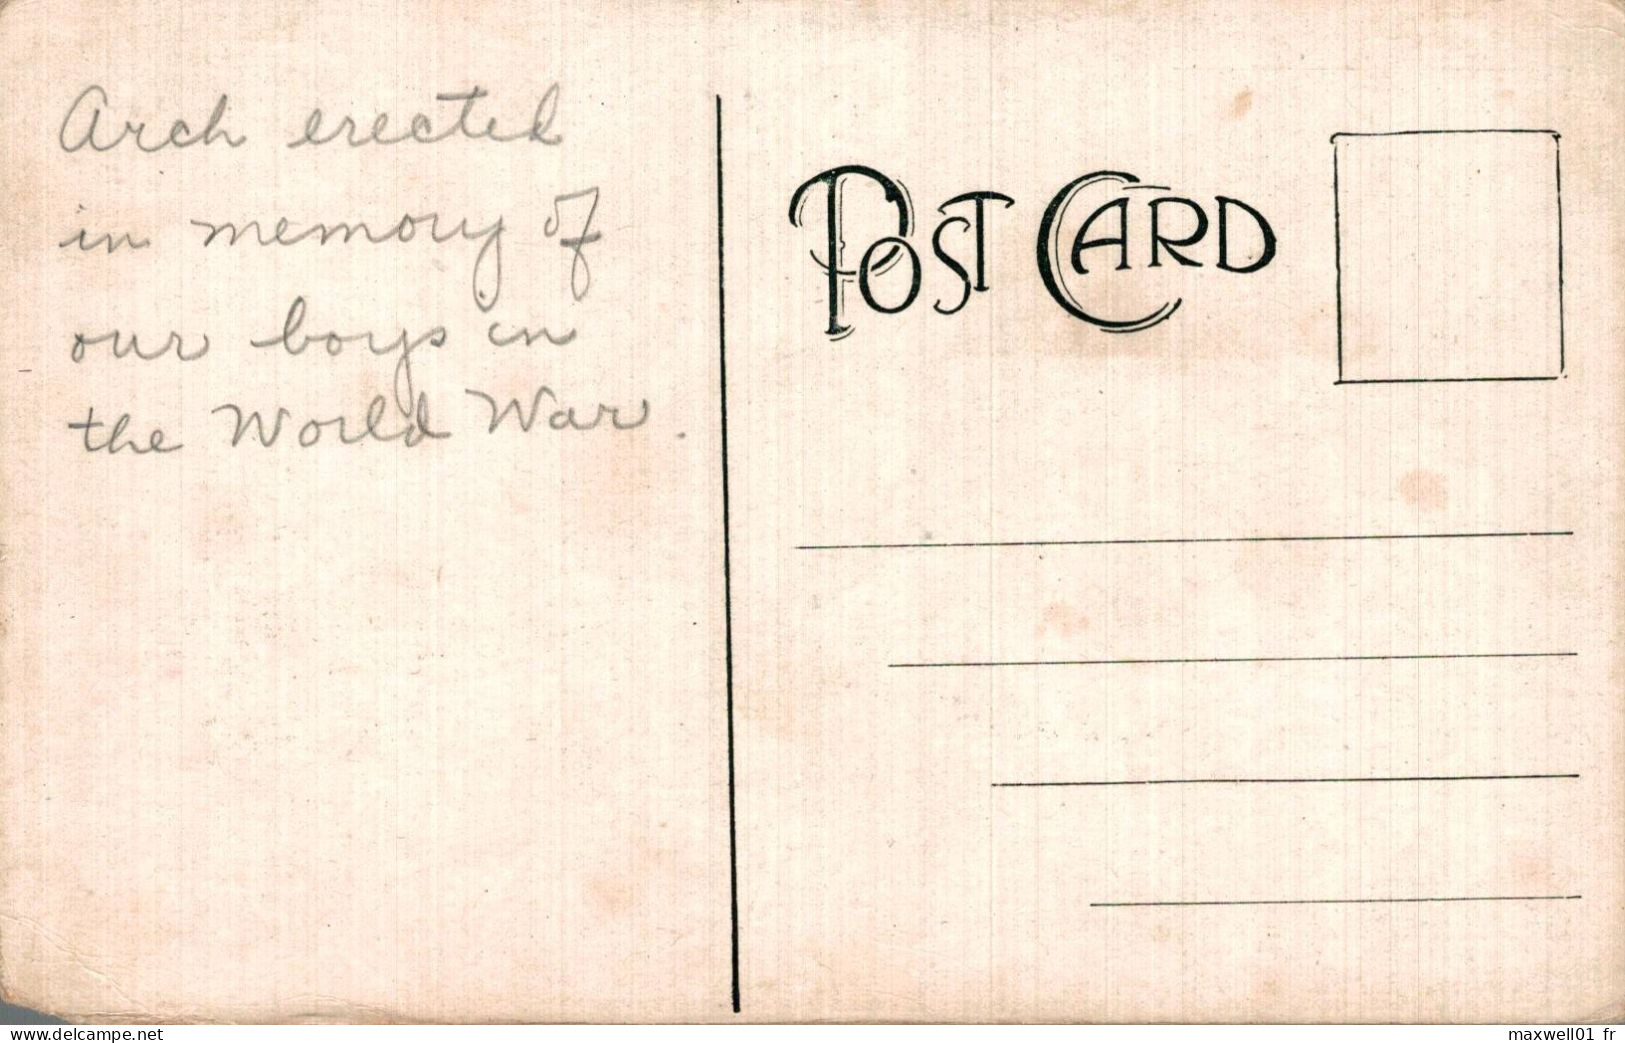 Arch erected
in memory of
our boys in
the World War.
POST CARD
www.delcampe.net
maxwell01 fr